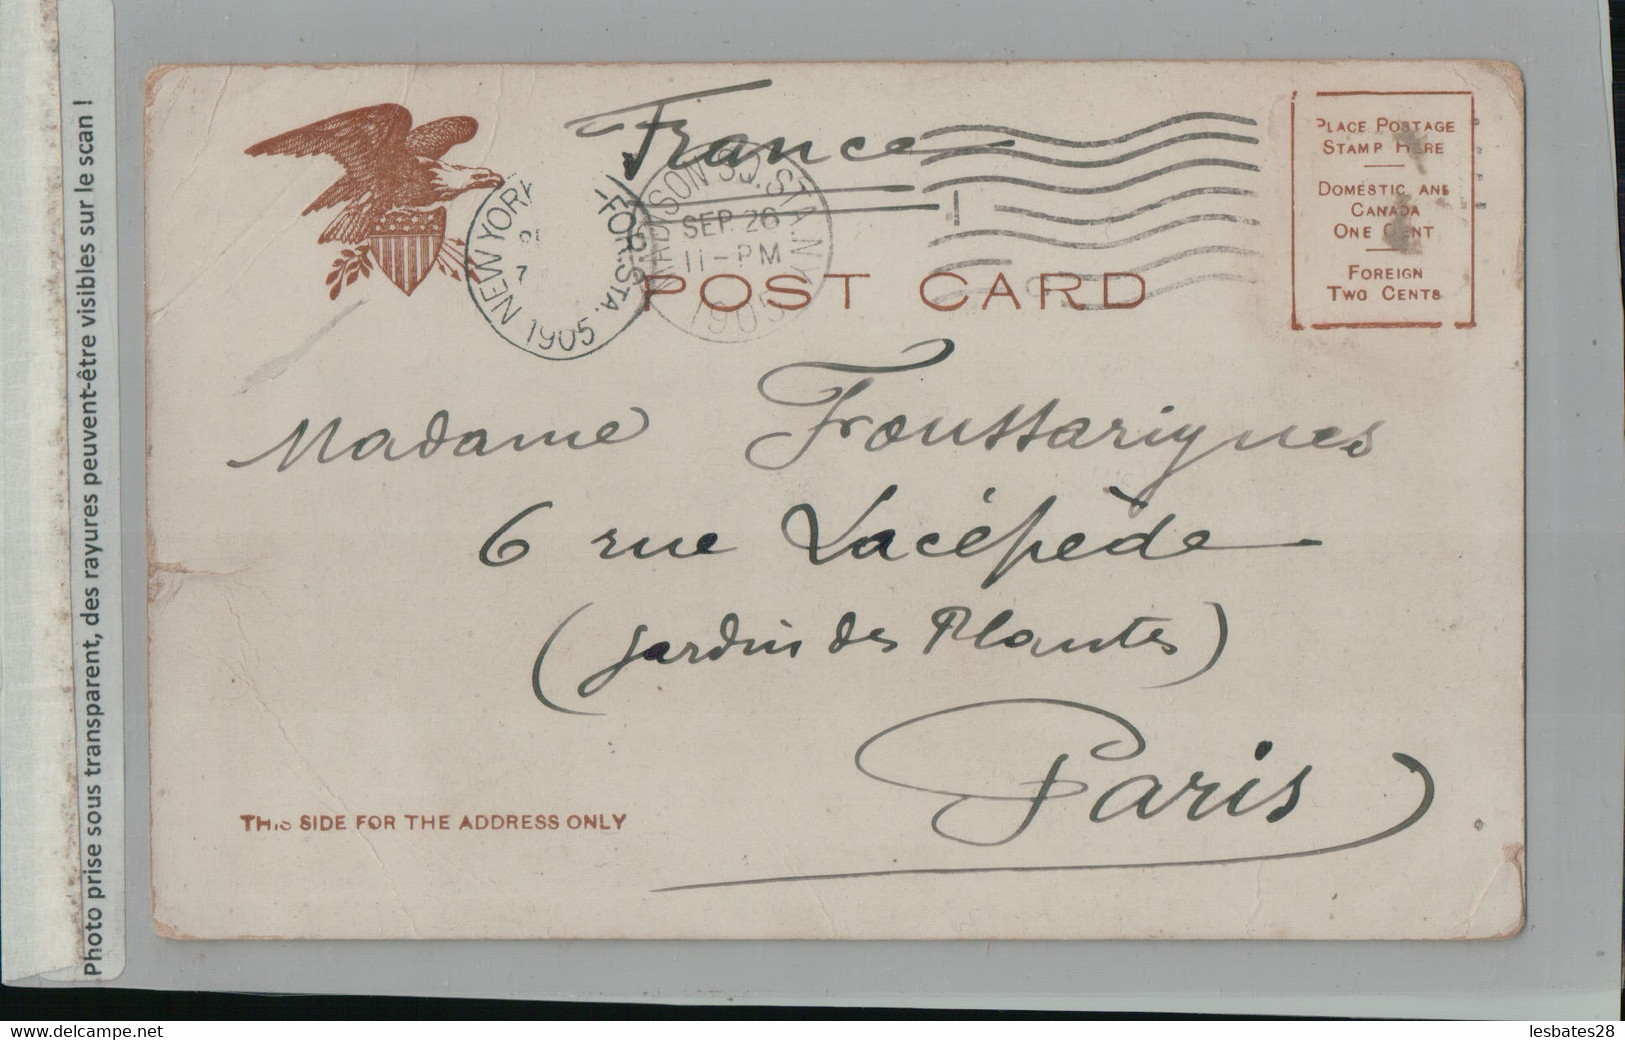 Photo prise sous transparent, des rayures peuvent-être visibles sur le scan !
France
PLACE POSTAGE
STAMP HERE
DOMESTIC AND
CANADA
ONE CENT
FOREIGN
TWO CENTS
NEW YORK
FOR. STA.
1905
MADISON SQ. STA. N.Y.
SEP 26
11-PM
1905
POST CARD
Madame Froussarigues
6 rue Lacépède
(jardin des Plantes)
Paris
THIS SIDE FOR THE ADDRESS ONLY
www.delcampe.net
lesbates28